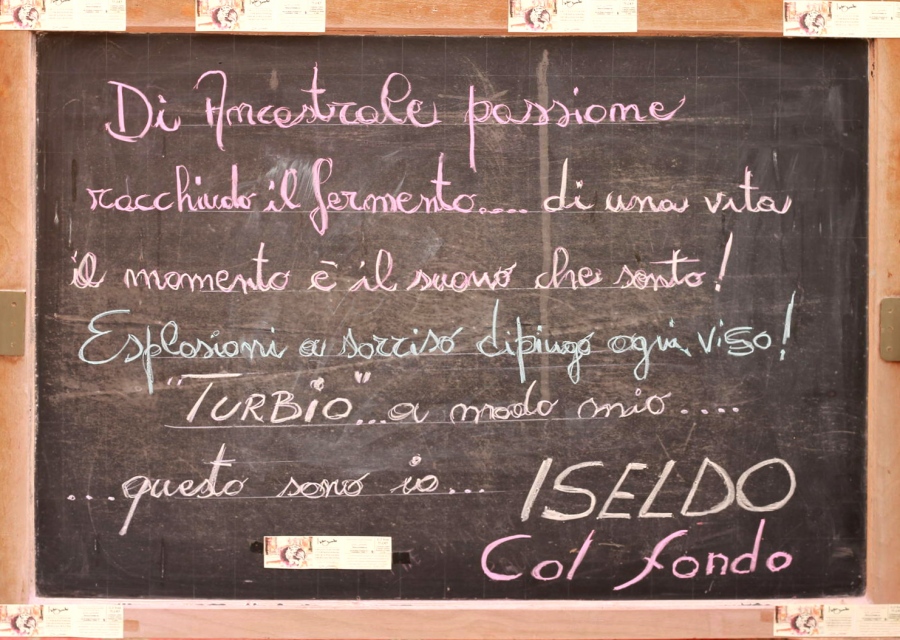 Di Ancestrale passione
racchiudo il fermento.... di una vita
il momento è il suono che sento!
Esplosioni a sorriso dipingo ogni viso!
"TURBIO"...a modo mio.....
...questo sono io...
ISELDO
Col fondo